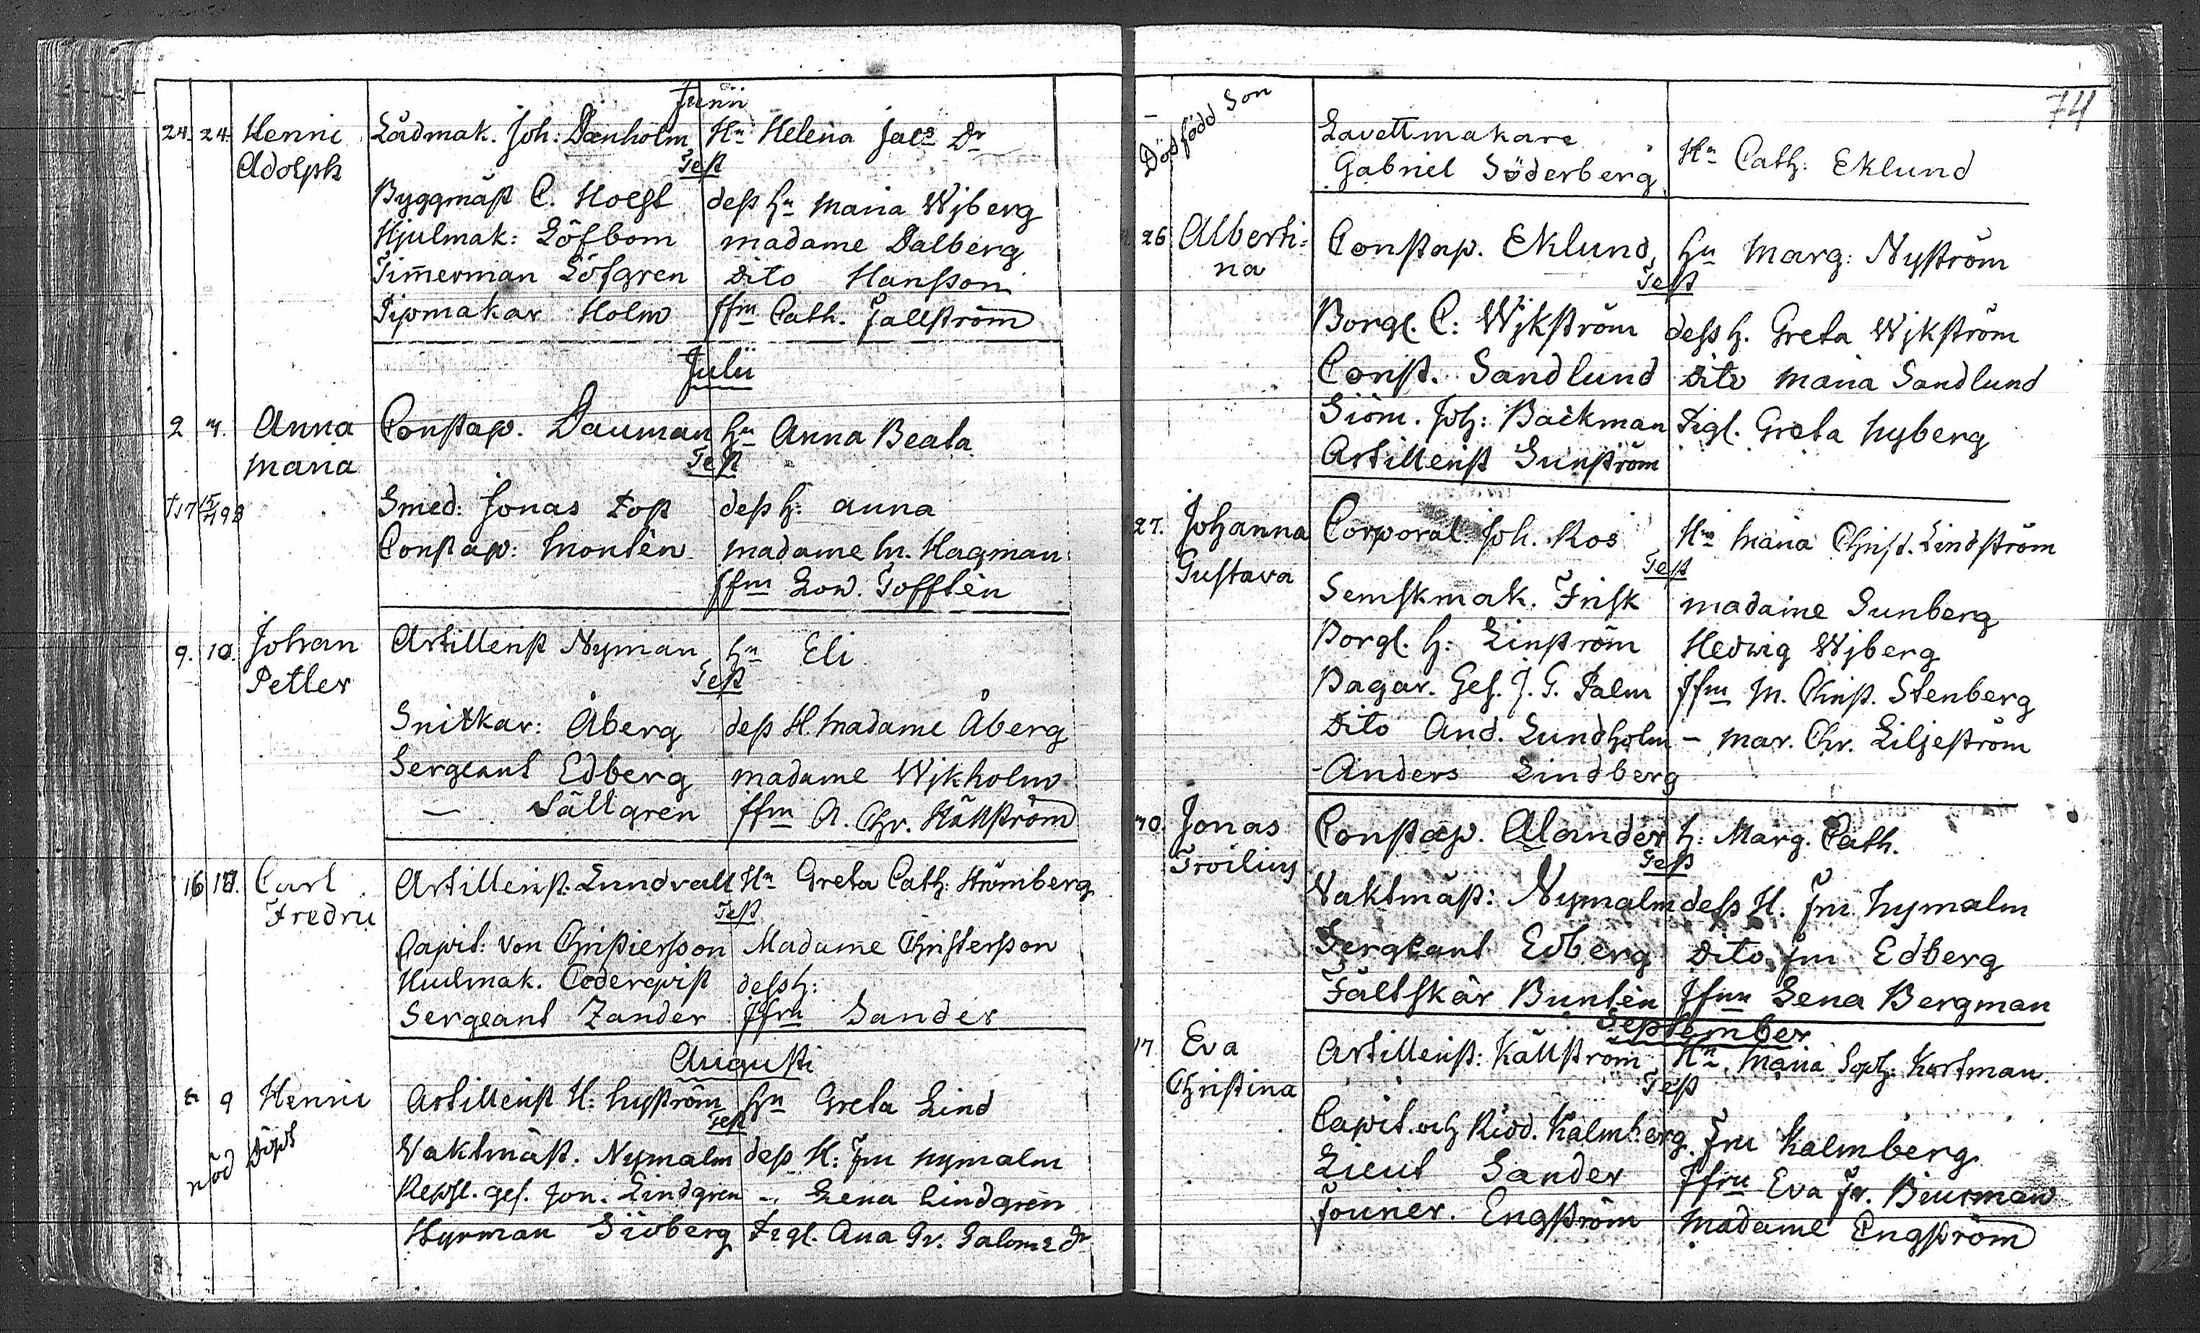 Junii
24. 24. Henric Lådmak. Joh: Dænholm Hn Helena Jacs Dr
Adolph Test
Byggmäst C. Holst dess hn Maria Wjberg
Hjulmak: Löfbom madame Dalberg
Timerman Löfgren Dito Hansson
Pipmakar Holm Jfru Cath. Fallström
Julii
2 Anna Constap. Dauman hn Anna Beata
Maria Test
Smed: Jonas dess h: Anna
Constap: Montèn madame M. Hagman
Jfru Lov. Tofftèn
9. 10. Johan Artillerist Nyman hn Eli
Petter Test
Snikkar: Åberg dess H. Madame Åberg
Sergeant Edberg madame Wjkholm
— Sällgren Jfru A. Chr. Källström
16 Carl Artillerist: Lundvall Hn Greta Cath: Strömberg
Fredric Test
Capit: von Christiersson Madame Christersson
Hudmak. Cederqvist dess h:
Sergeant Zander Jfru Sander
Augusti
8. 9 Henric Artillerist H: Nyström hn Greta Lind
Test
nöd Döpt Vaktmäst. Nymalm dess H: Fru Nymalm
Repsl. ges. Jon. Lindgren — Lena Lindgren
Styrman Siöberg Pigl. Ana Gr. Salom: Dr
74
Dödfödd Son Lavettmakare
Gabriel Söderberg Hn Cath: Eklund
26 Alberti: Constap. Eklund hn Marg: Nyström
na Test
Borgl. C: Wjkström dess h. Greta Wjkström
Const. Sandlund Dito Maria Sandlund
Siöm. Joh: Backman Pigl. Greta Nyberg
Artillerist Sunström
27. Johanna Corporal Joh. Ros Hn Maria Christ. Lindström
Gustava Test
Semskmak. Frisk madame Sunberg
Borgl. H: Linström Hedvig Wjberg
Bagar. Ges. J. G. Palm Jfru M. Christ. Stenberg
Dito And. Lundholm — Mar. Chr. Liljeström
- Anders Lindberg
30. Jonas Constap. Alander h: Marg. Cath.
Troilius Test
Vaktmäst: Nymalm dess H. Fru Nymalm
Sergeant Edberg Dito Fru Edberg
Fältskär Buntèn Jfru Lena Bergman
September
17 Eva Artillerist: Källström Hn Maria Soph: Hartman.
Christina Test
Capit. och Ridd. Kalmberg Fru Kalmberg
Lieut Sander Jfru Eva Fr. Biurman
Fourier. Engström Madame Engström